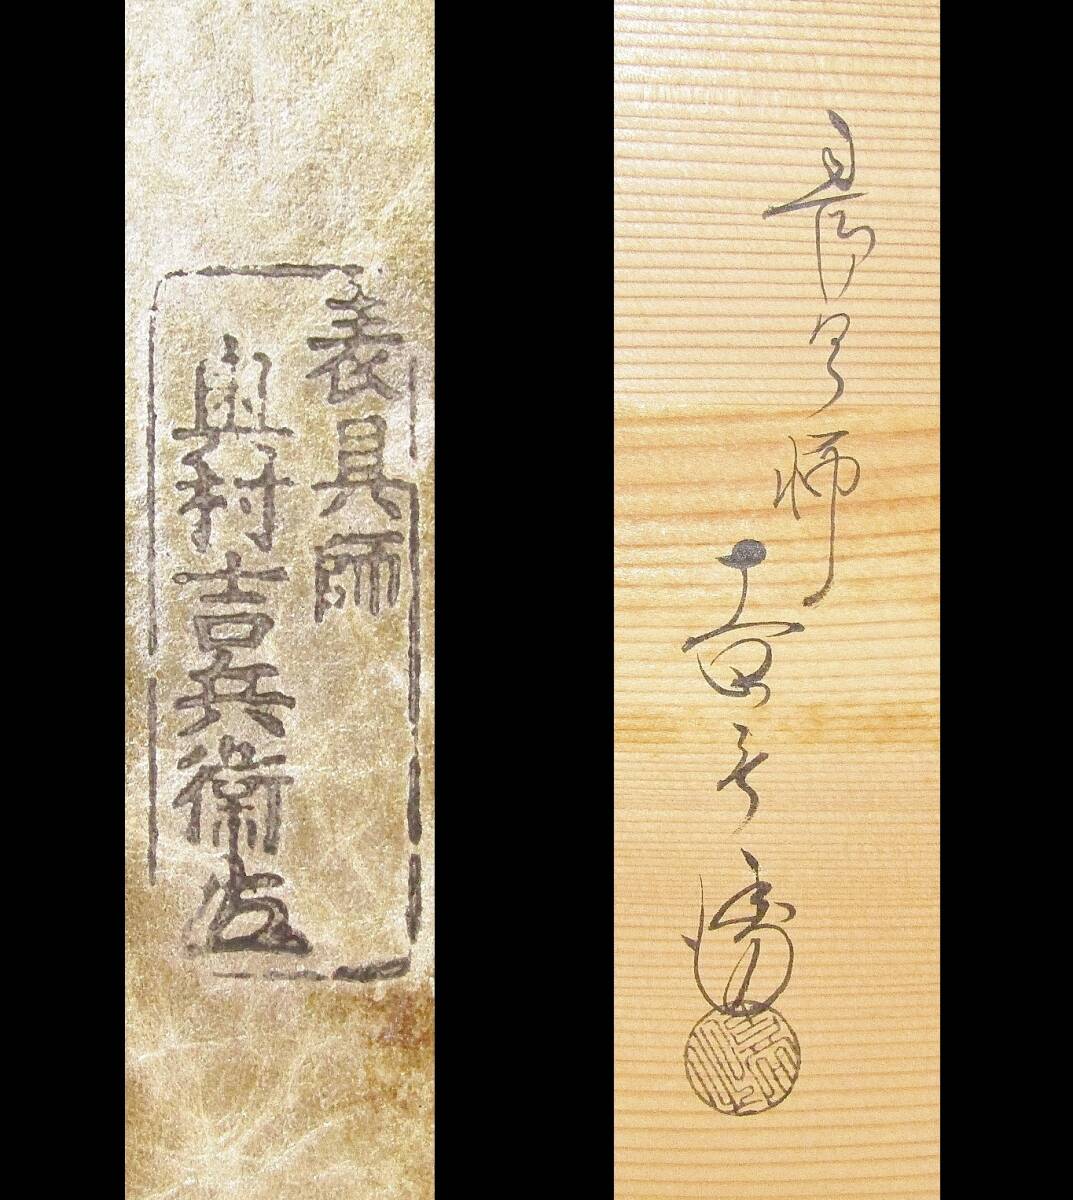 表具師
奥村吉兵衛
表具師
吉兵衛